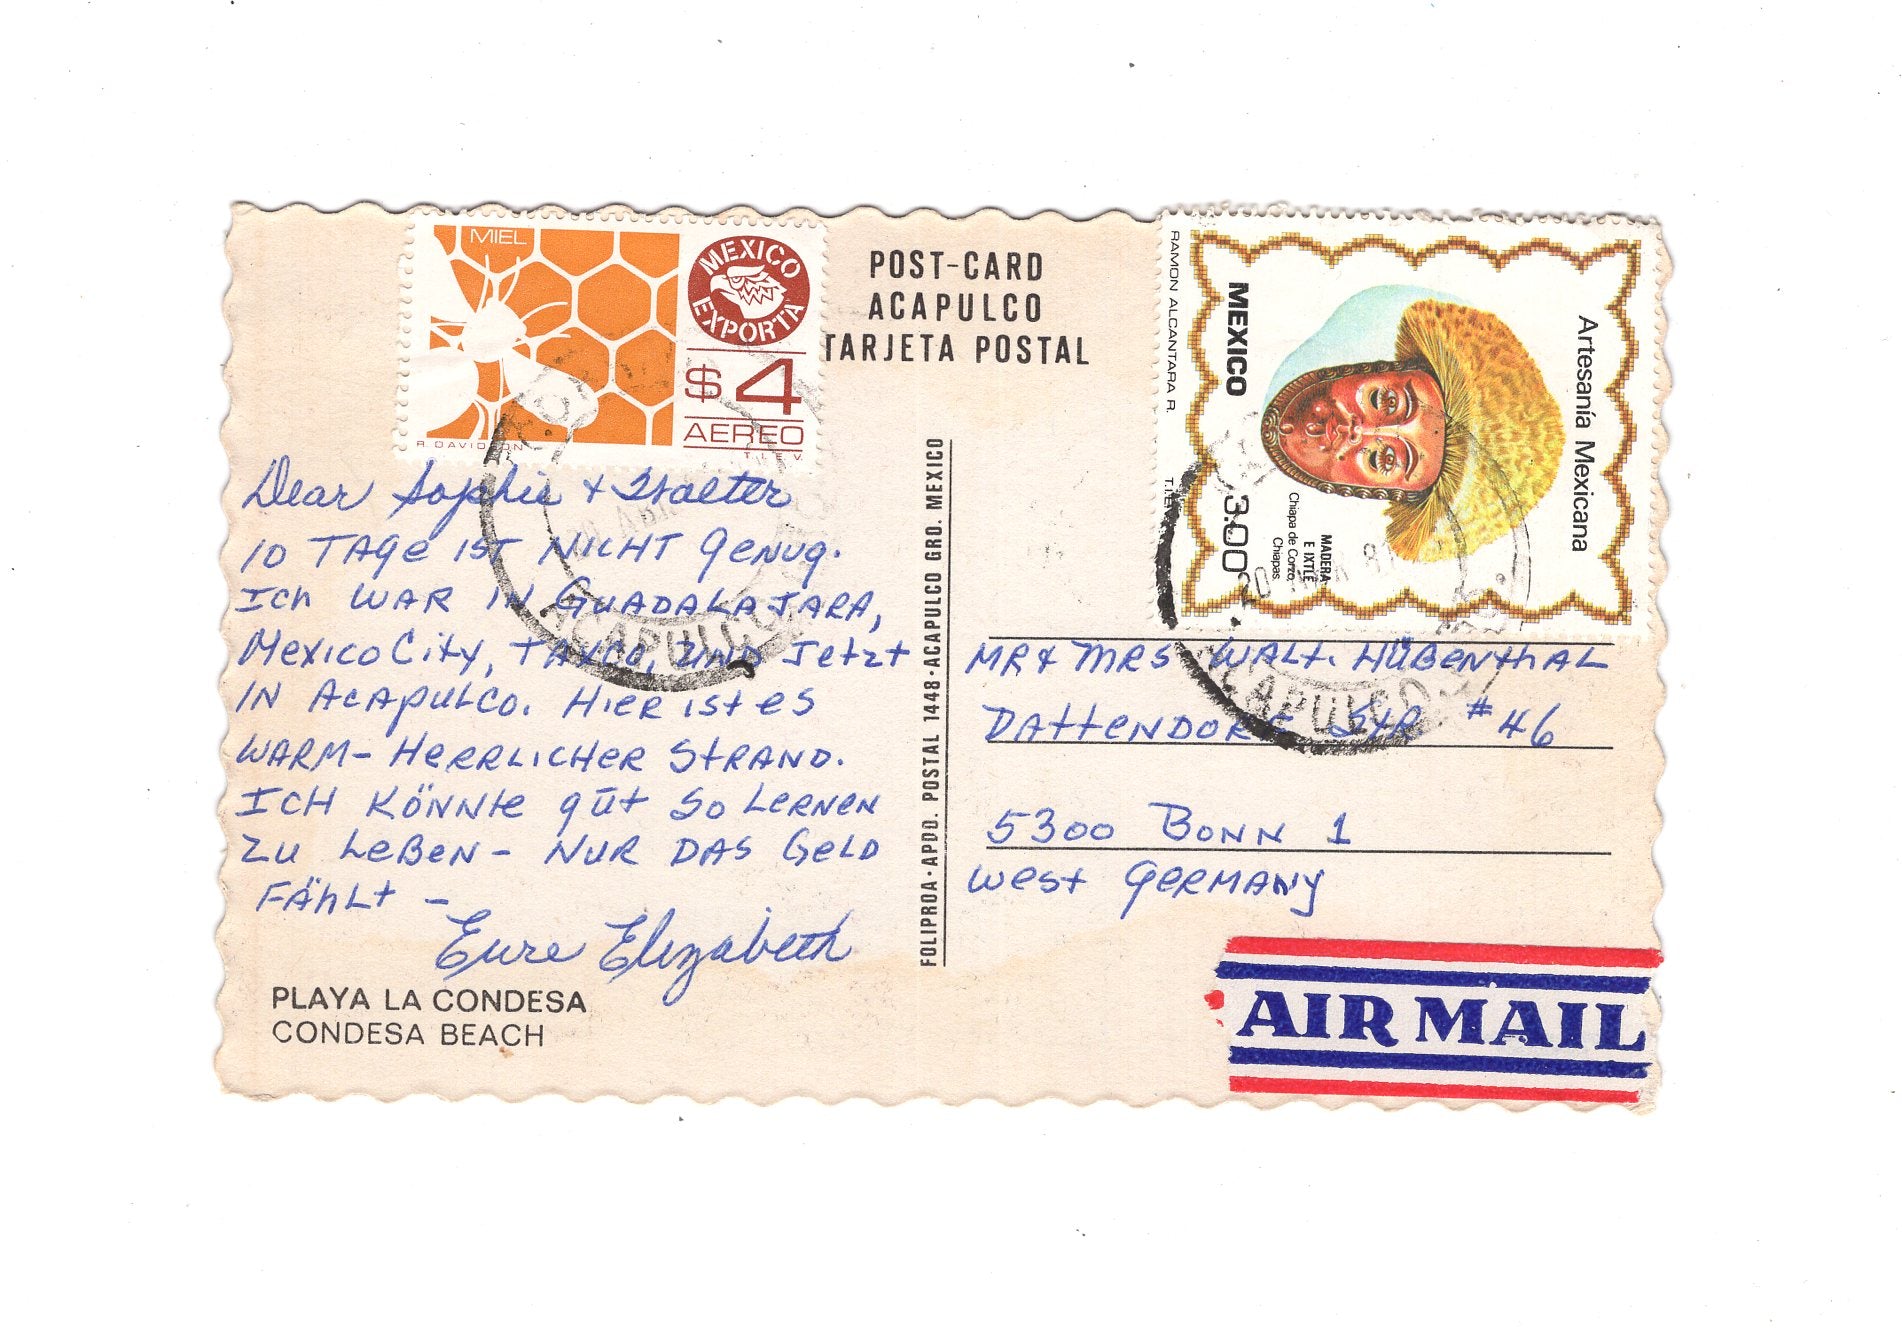 MIEL
MEXICO
EXPORTA
$4
AEREO
R. DAVIDSON
T.I.E.V.
POST-CARD
ACAPULCO
TARJETA POSTAL
RAMON ALCANTARA R.
T.I.E.V.
MEXICO
3.00
MADERA
E IXTLE
Chiapa de Corzo,
Chiapas.
Artesanía Mexicana
20 ABR
ACAPULCO
20 81
ACAPULCO
Dear Sophie + Walter
10 TAGE IST NICHT GENUG.
ICH WAR IN GUADALAJARA,
MEXICO CITY, TAXCO, UND JETZT
IN ACAPULCO. HIER IST ES
WARM - HERRLICHER STRAND.
ICH KÖNNTE GŪT SO LERNEN
ZU LEBEN - NUR DAS GELD
FÄHLT -
Eure Elizabeth
PLAYA LA CONDESA
CONDESA BEACH
FOLIPROA · APDO. POSTAL 1448 · ACAPULCO GRO. MEXICO
MR + MRS WALT. HÜBENTHAL
DATTENDORF STR #46
5300 BONN 1
WEST GERMANY
AIR MAIL